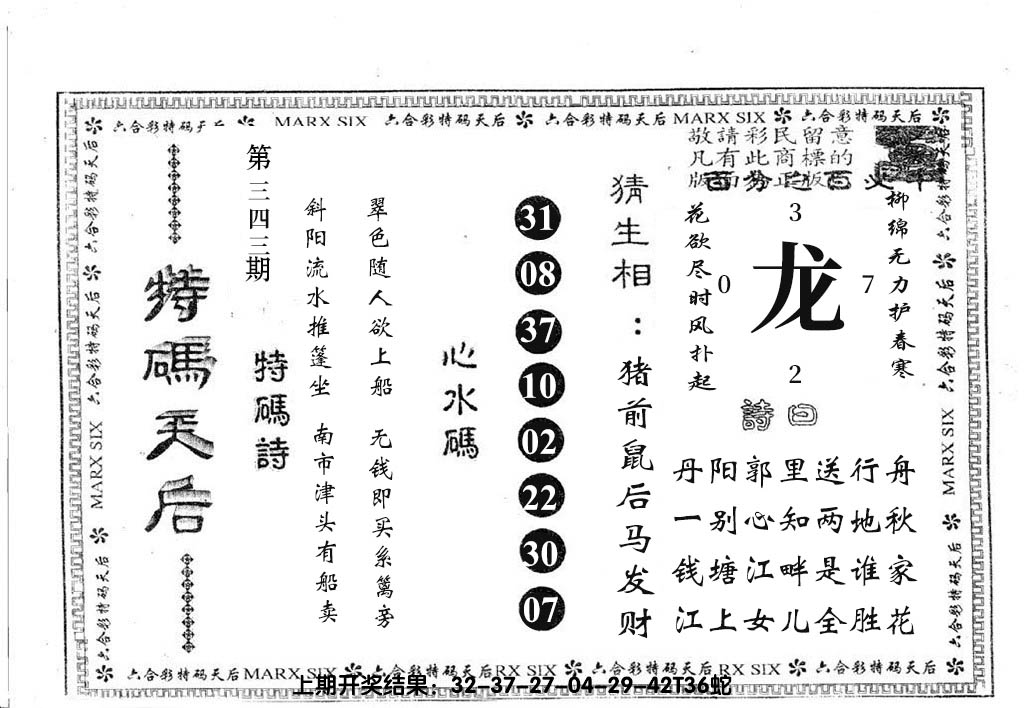 六合彩特码天后 MARX SIX 六合彩特码天后 六合彩特码天后 MARX SIX 六合彩特码天后
敬請彩民留意
凡有此商標的
版面为正版
第三四三期
特碼天后
特碼詩
斜阳流水推篷坐 南市津头有船卖
翠色随人欲上船 无钱即买系篱旁
心水碼
31
08
37
10
02
22
30
07
猜生相：猪前鼠后马发财
花欲尽时风扑起
3
0
龙
7
2
柳绵无力护春寒
詩曰
丹阳郭里送行舟
一别心知两地秋
钱塘江畔是谁家
江上女儿全胜花
六合彩特码天后
MARX SIX
六合彩特码天后
六合彩特码天后
六合彩特码天后
MARX SIX
六合彩特码天后
六合彩特码天后 MARX SIX 六合彩特码天后 RX SIX 六合彩特码天后 RX SIX 六合彩特码天后
上期开奖结果：32-37-27-04-29-42T36蛇